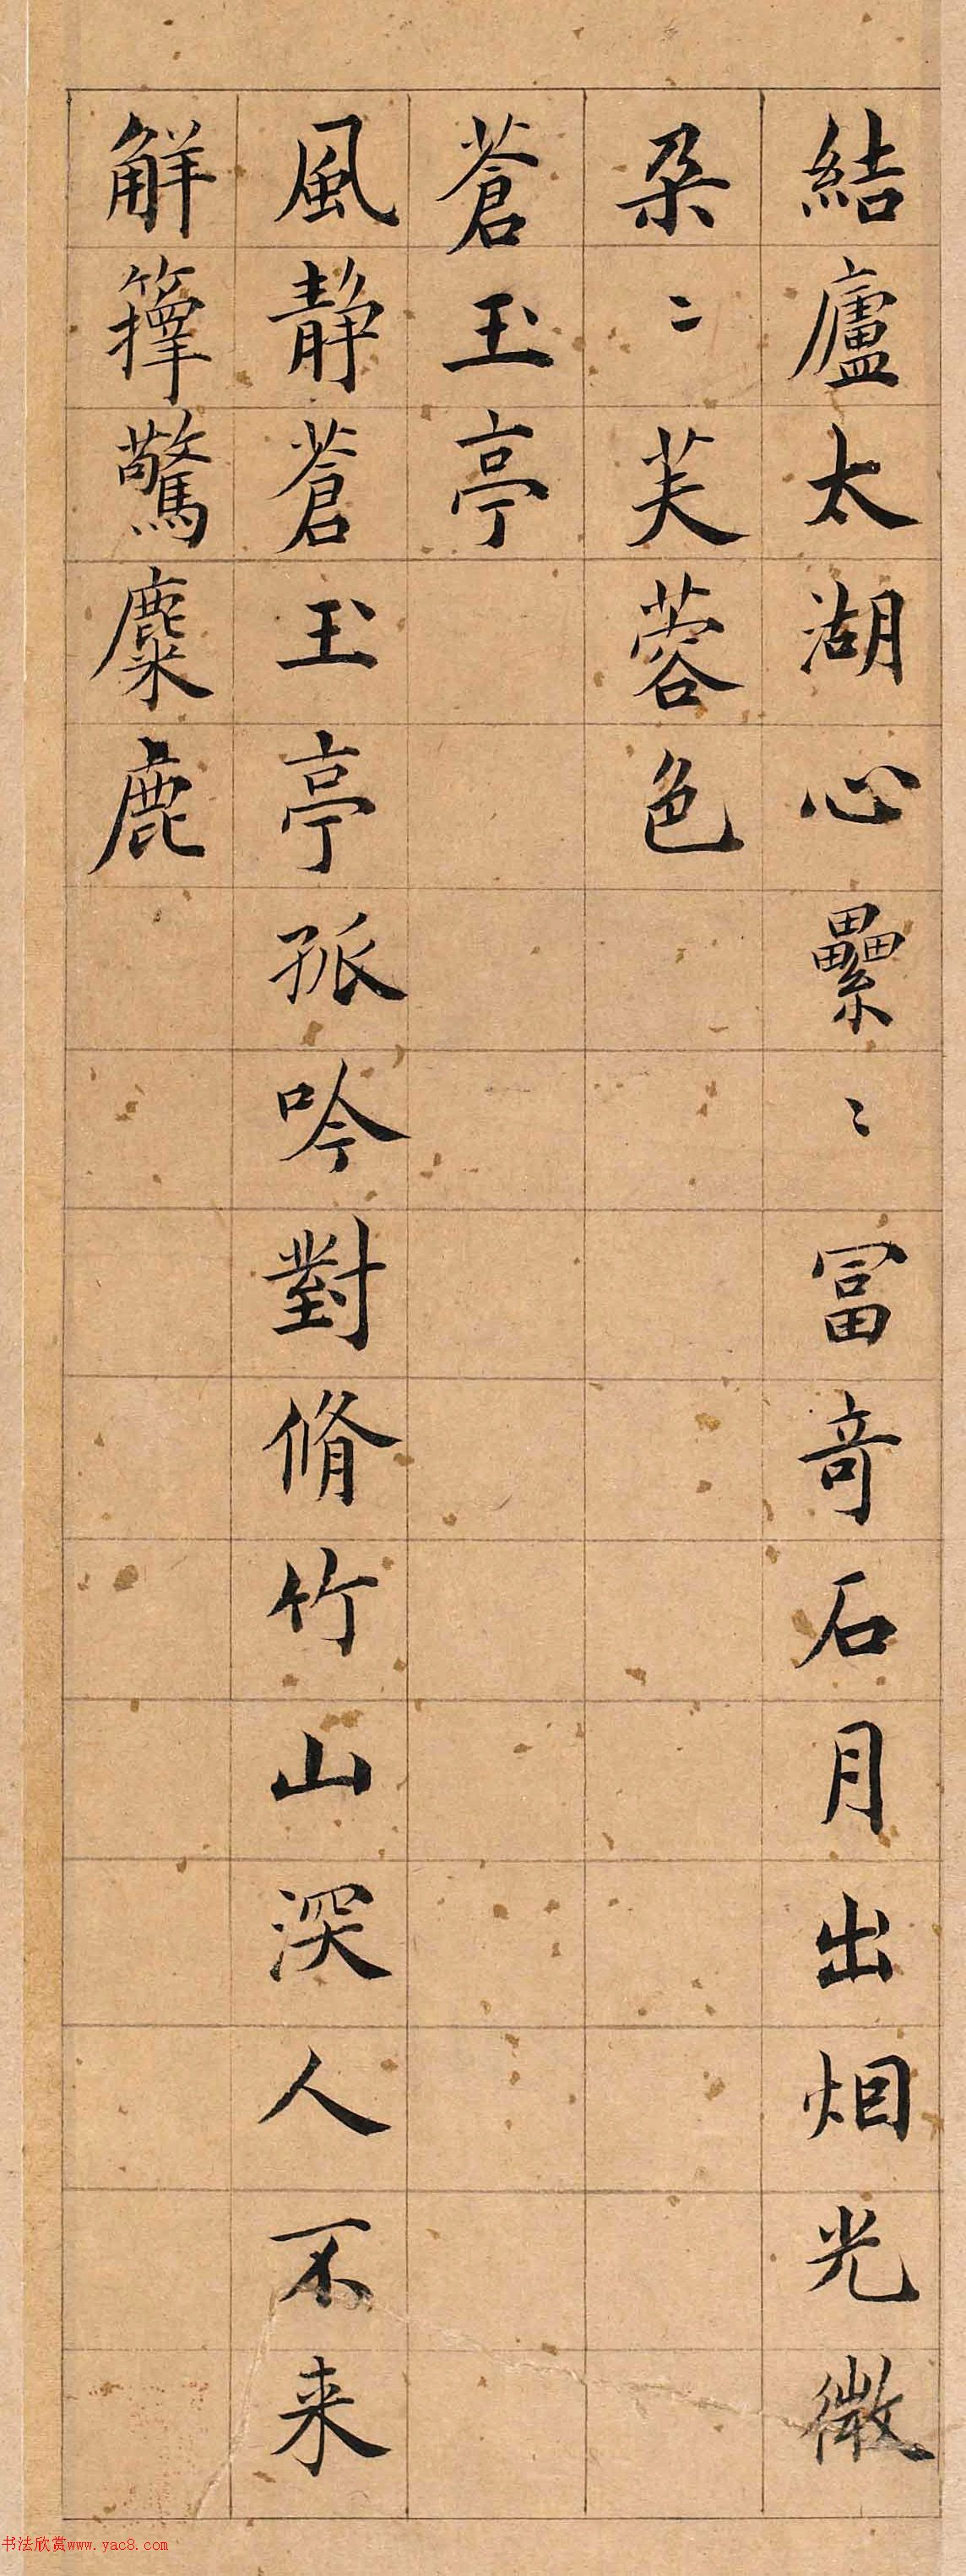 結廬太湖心纍〻富奇石月出烟光微
朶〻芙蓉色
蒼玉亭
風静蒼玉亭孤吟對脩竹山深人不来
觧籜驚麋鹿
书法欣赏www.yac8.com